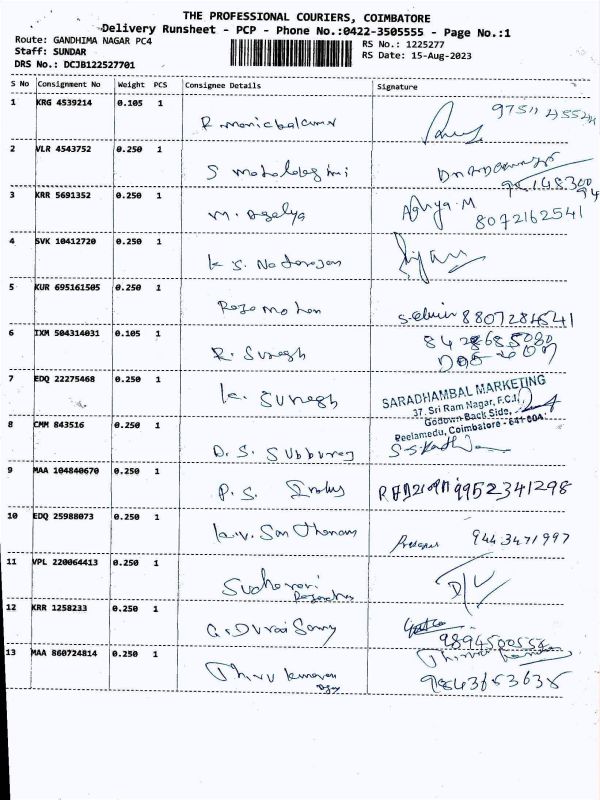 THE PROFESSIONAL COURIERS, COIMBATORE
Delivery Runsheet - PCP - Phone No.:0422-3505555 - Page No.:1
Route: GANDHIMA NAGAR PC4
Staff: SUNDAR
DRS No.: DCJB122527701
RS No.: 1225277
RS Date: 15-Aug-2023
S No Consignment No Weight PCS Consignee Details Signature
1 KRG 4539214 0.105 1
R manickalkumar
2 VLR 4543752 0.250 1
S
3 KRR 5691352 0.250 1
M. Agalya Aghya.M
8072162541
4 SVK 10412720 0.250 1
K S. Natarajan
5 KUR 695161505 0.250 1
Raja mohan
6 IXM 504314031 0.105 1
R. Suresh
7 EDQ 22275468 0.250 1
K. Suresh
SARADHAMBAL MARKETING
37, Sri Ram Nagar, F.C.I.,
Godown Back Side,
Peelamedu, Coimbatore - 641 004
8 CMM 843516 0.250 1
D. S. Subburaj
9 MAA 104840670 0.250 1
P. S. 9952341298
10 EDQ 25988073 0.250 1
K.V. Santhanam 9443471997
11 VPL 220064413 0.250 1
12 KRR 1258233 0.250 1
G. Durai Samy
13 MAA 860724814 0.250 1
Thiru kumaran
9843653635